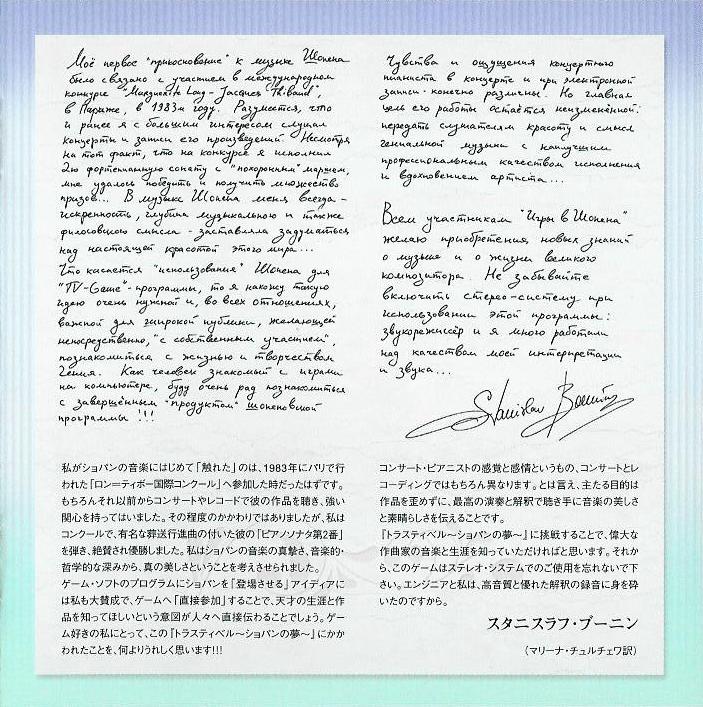 Моё первое "прикосновение" к музыке Шопена
было связано с участием в международном
конкурсе "Marguerite Long - Jacques Thibaud",
в Париже, в 1983м году. Разумеется, что
и ранее я с большим интересом слушал
концерты и записи его произведений. Несмотря
на тот факт, что на конкурсе я исполнил
2ю фортепианную сонату с "похоронным" маршем,
мне удалось победить и получить множество
призов... В музыке Шопена меня всегда -
искренность, глубина музыкального и также
философского смысла - заставляла задуматься
над настоящей красотой этого мира...
Что касается "использования" Шопена для
"TV-Game"-программы, то я нахожу такую
идею очень нужной и, во всех отношениях,
важной для широкой публики, желающей
непосредственно, "с собственным участием",
познакомиться с жизнью и творчеством
гения. Как человек знакомый с играми
на компьютере, буду очень рад познакомиться
с завершённым "продуктом" шопеновской
программы !!!
Чувства и ощущения концертного
пианиста в концерте и при электронной
записи - конечно различны. Но главная
цель его работы остаётся неизменной:
передать слушателям красоту и смысл
гениальной музыки с наилучшим
профессиональным качеством исполнения
и вдохновением артиста...
Всем участникам "Игры в Шопена"
желаю приобретения новых знаний
о музыке и о жизни великого
композитора. Не забывайте
включить стерео-систему при
использовании этой программы:
звукорежиссёр и я много работали
над качеством моей интерпретации
и звука...
Stanislav Bounin
私がショパンの音楽にはじめて「触れた」のは、1983年にパリで行
われた「ロン=ティボー国際コンクール」へ参加した時だったはずです。
もちろんそれ以前からコンサートやレコードで彼の作品を聴き、強い
関心を持ってはいました。その程度のかかわりではありましたが、私は
コンクールで、有名な葬送行進曲の付いた彼の「ピアノソナタ第2番」
を弾き、絶賛され優勝しました。私はショパンの音楽の真摯さ、音楽的・
哲学的な深みから、真の美しさということを考えさせられました。
ゲーム・ソフトのプログラムにショパンを「登場させる」アイディアに
は私も大賛成で、ゲームへ「直接参加」することで、天才の生涯と作
品を知ってほしいという意図が人々へ直接伝わることでしょう。ゲー
ム好きの私にとって、この『トラスティベル〜ショパンの夢〜』にかか
われたことを、何よりうれしく思います!!!
コンサート・ピアニストの感覚と感情というもの、コンサートとレ
コーディングではもちろん異なります。とは言え、主たる目的は
作品を歪めずに、最高の演奏と解釈で聴き手に音楽の美しさ
と素晴らしさを伝えることです。
『トラスティベル〜ショパンの夢〜』に挑戦することで、偉大な
作曲家の音楽と生涯を知っていただければと思います。それか
ら、このゲームはステレオ・システムでのご使用を忘れないで下
さい。エンジニアと私は、高音質と優れた解釈の録音に身を砕
いたのですから。
スタニスラフ・ブーニン
(マリーナ・チュルチェワ訳)